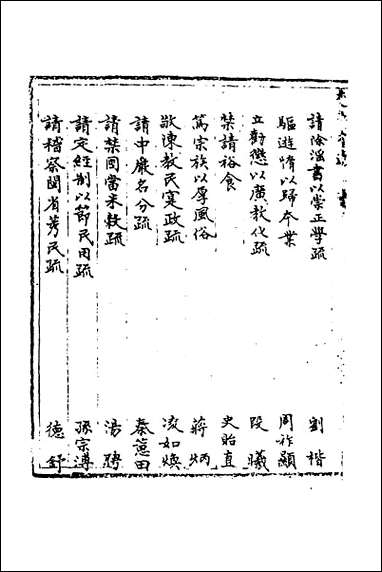 請除滛書以崇正學疏 劉楷
驅遊惰以歸本業 周祚顯
立勸懲以廣教化疏 段曦
禁請裕食 史貽直
篤宗族以厚風俗 蔣炳
敬陳教民寔政疏 凌如煥
請申嚴名分疏 秦蕙田
請禁囤當米穀疏 湯聘
請定經制以節民用疏 孫宗溥
請稽察閩省莠民疏 德舒